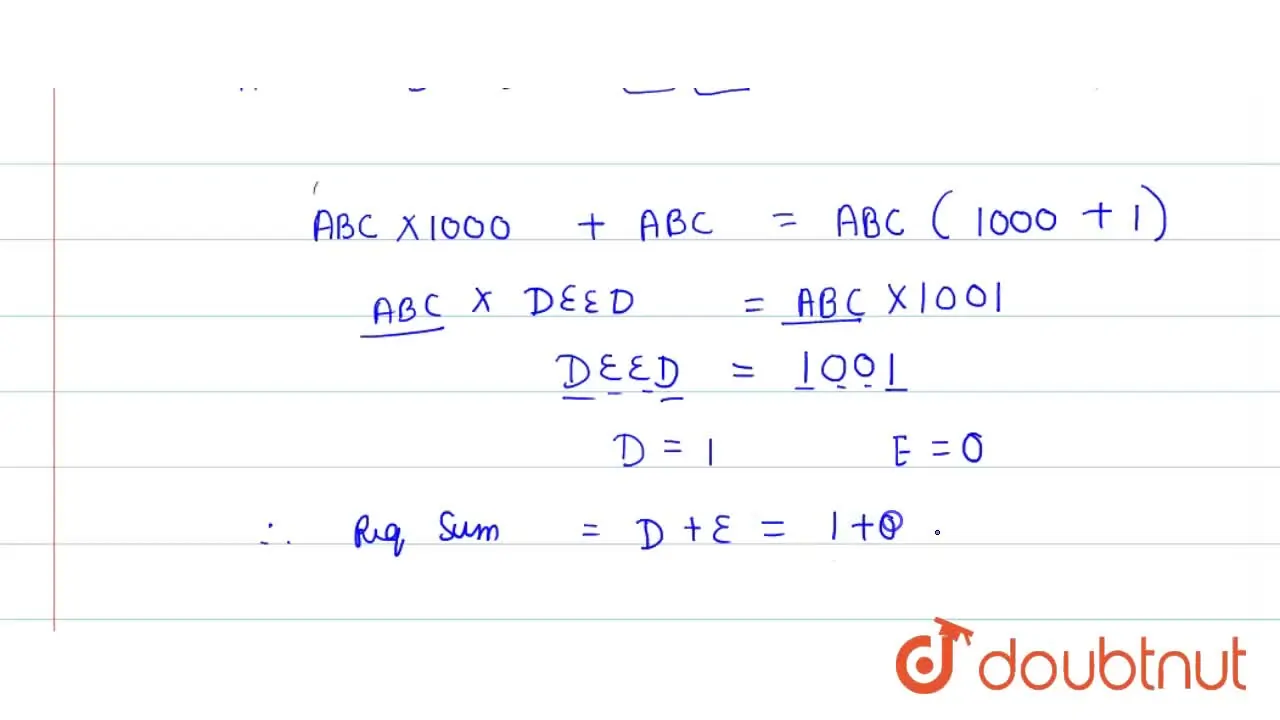 ABC X 1000 + ABC = ABC (1000 + 1)
ABC X DEED = ABC X 1001
DEED = 1001
D = 1 E = 0
∴ Req Sum = D + E = 1 + 0
doubtnut